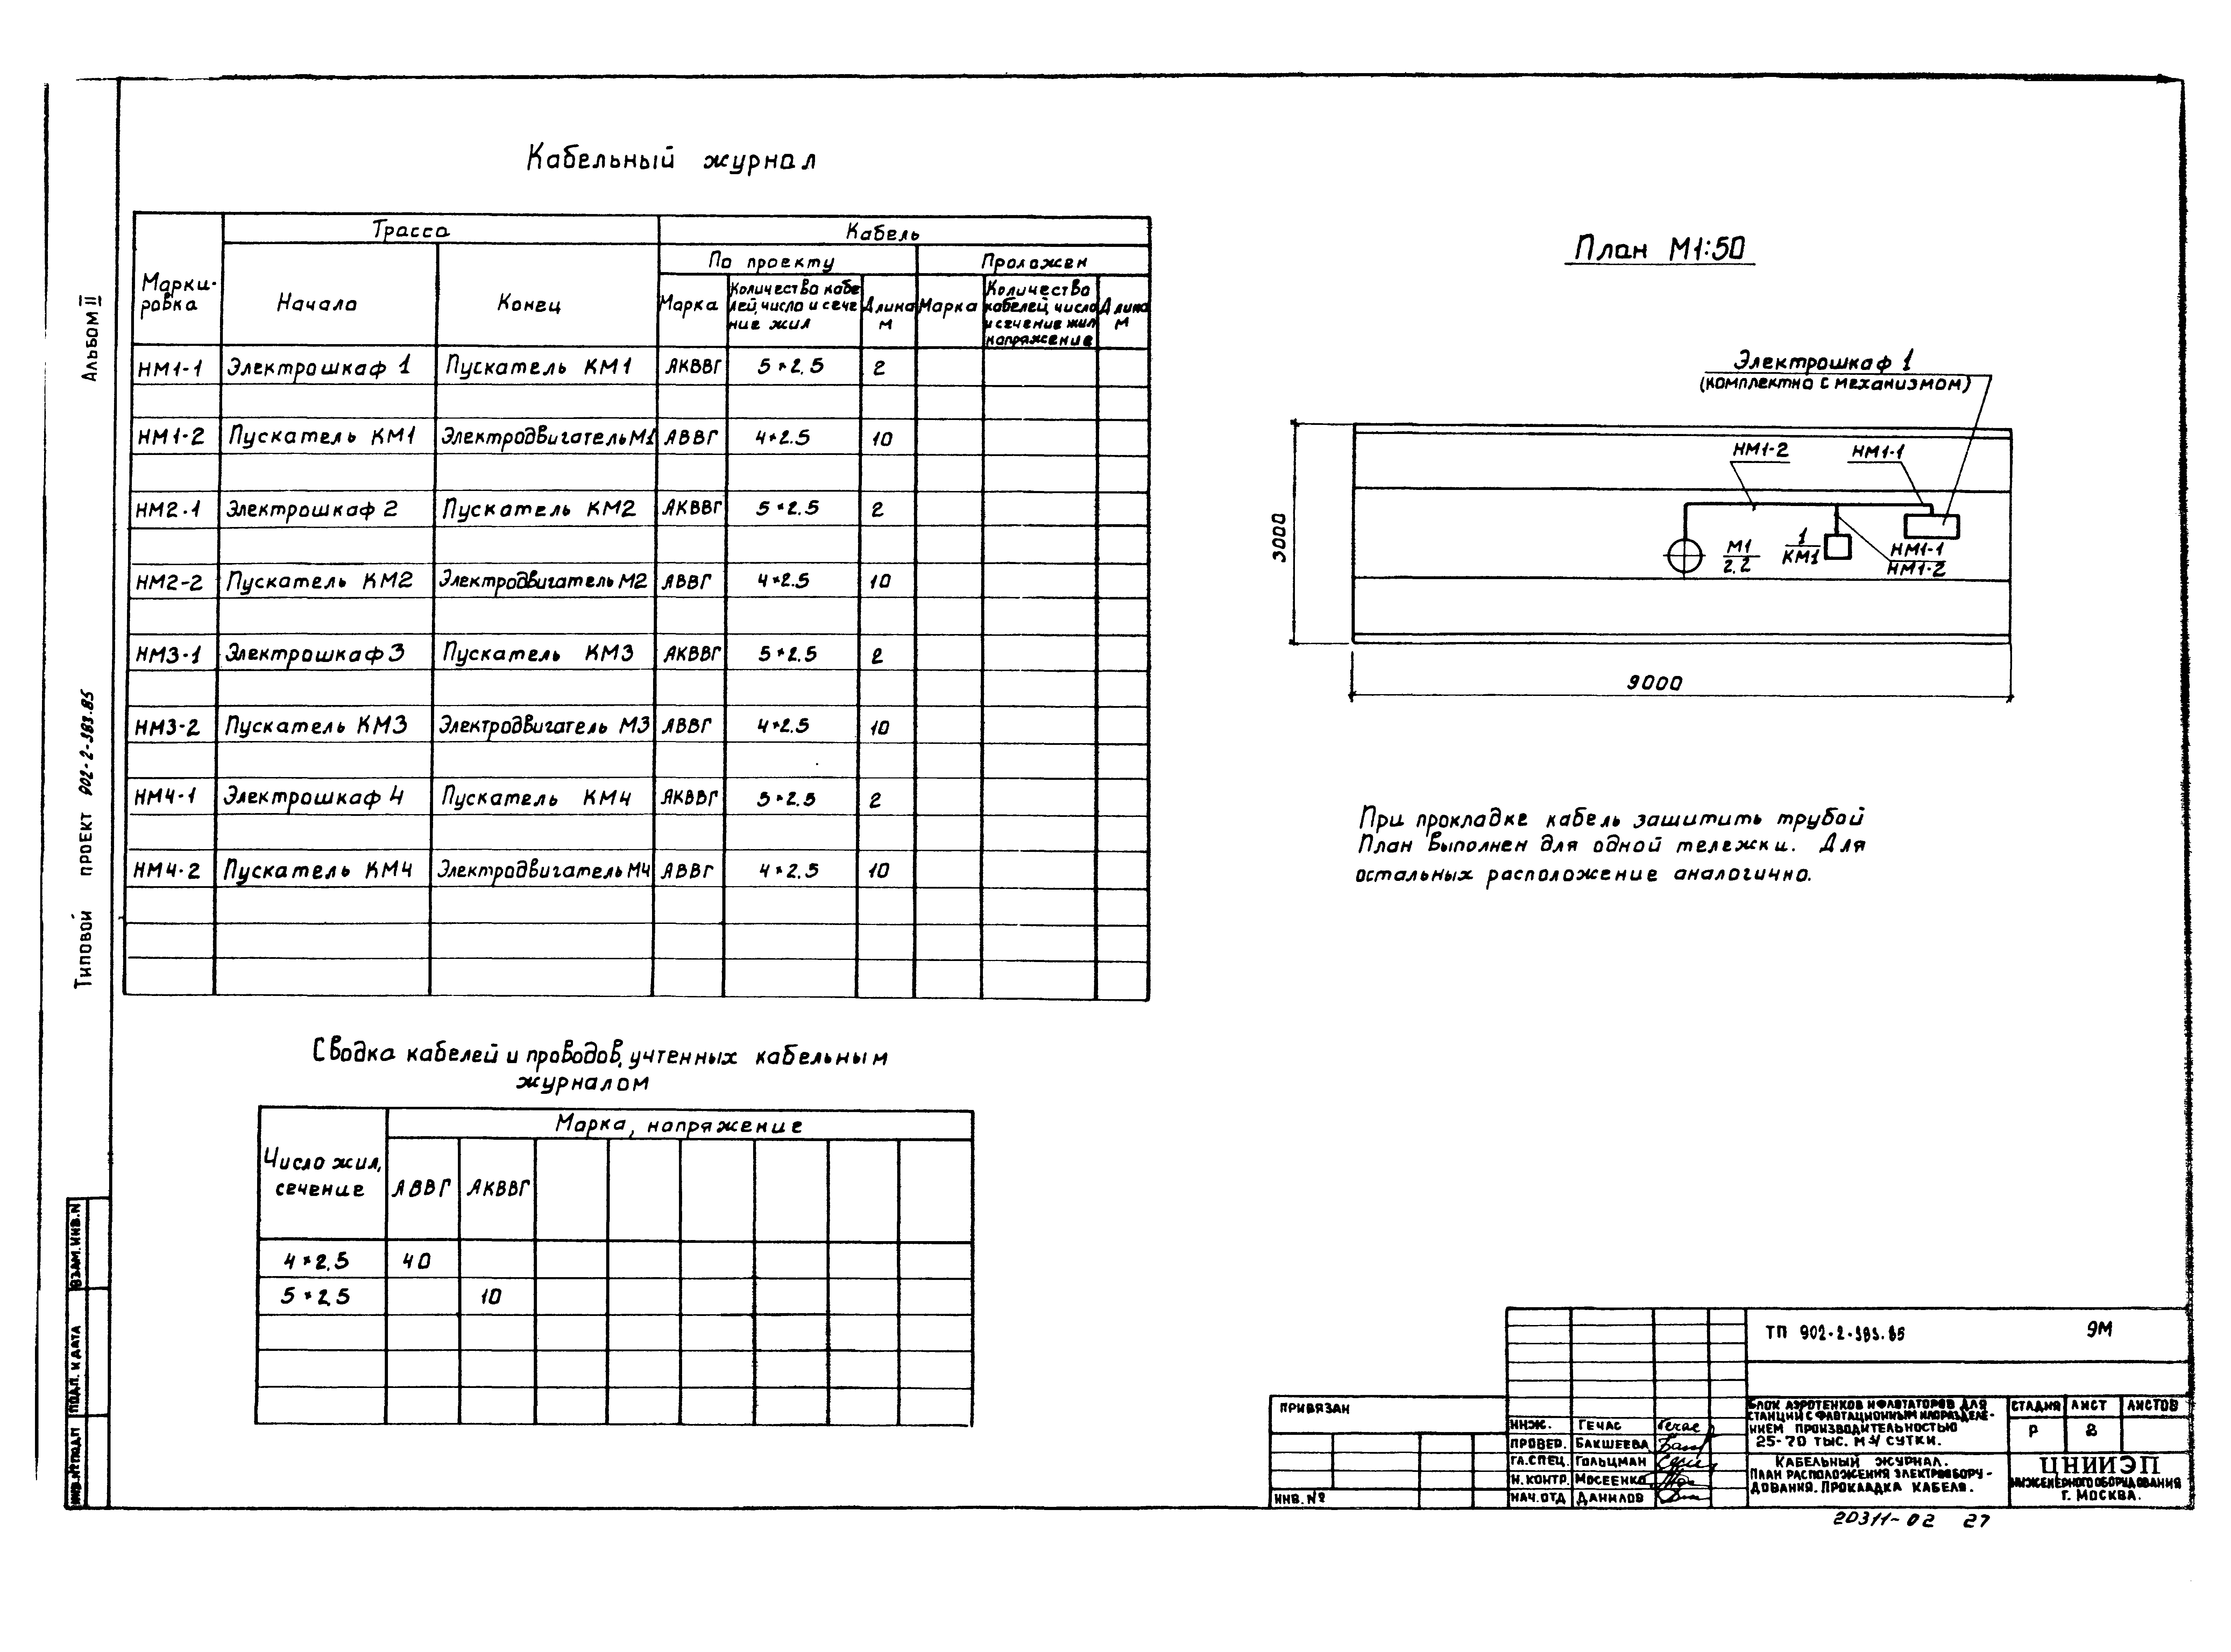 Кабельный журнал
Марки-
ровка
Трасса
Кабель
Начало
Конец
По проекту
Проложен
Марка
Количество кабе
лей, число и сече
ние жил
Длина
м
Марка
Количество
кабелей, число
и сечение жил
напряжение
Длина
м
НМ1-1 Электрошкаф 1 Пускатель КМ1 АКВВГ 5*2.5 2
НМ1-2 Пускатель КМ1 Электродвигатель М1 АВВГ 4*2.5 10
НМ2-1 Электрошкаф 2 Пускатель КМ2 АКВВГ 5*2.5 2
НМ2-2 Пускатель КМ2 Электродвигатель М2 АВВГ 4*2.5 10
НМ3-1 Электрошкаф 3 Пускатель КМ3 АКВВГ 5*2.5 2
НМ3-2 Пускатель КМ3 Электродвигатель М3 АВВГ 4*2.5 10
НМ4-1 Электрошкаф 4 Пускатель КМ4 АКВВГ 5*2.5 2
НМ4-2 Пускатель КМ4 Электродвигатель М4 АВВГ 4*2.5 10
Сводка кабелей и проводов, учтенных кабельным
журналом
Число жил,
сечение
Марка, напряжение
АВВГ АКВВГ
4*2.5 40
5*2.5 10
План М1:50
Электрошкаф 1
(комплектно с механизмом)
НМ1-2
НМ1-1
М1
2.2
1
КМ1
НМ1-1
НМ1-2
3000
9000
При прокладке кабель защитить трубой
План выполнен для одной тележки. Для
остальных расположение аналогично.
Альбом II
Типовой проект 902-2-383.85
ВЗАМ. ИНВ. N
ПОДП. И ДАТА
ИНВ. № ПОДЛ
ПРИВЯЗАН
ИНВ. №
ИНЖ. ГЕЧАС
ПРОВЕР. БАКШЕЕВА
ГЛ. СПЕЦ. ГОЛЬЦМАН
Н. КОНТР. МОСЕЕНКО
НАЧ. ОТД ДАНИЛОВ
ТП 902-2-383.85 ЭМ
БЛОК АЭРОТЕНКОВ И ФЛОТАТОРОВ ДЛЯ
СТАНЦИИ С ФЛОТАЦИОННЫМ ИЛОРАЗДЕЛЕ-
НИЕМ ПРОИЗВОДИТЕЛЬНОСТЬЮ
25-70 ТЫС. М3/ СУТКИ.
СТАДИЯ ЛИСТ ЛИСТОВ
Р 8
КАБЕЛЬНЫЙ ЖУРНАЛ.
ПЛАН РАСПОЛОЖЕНИЯ ЭЛЕКТРООБОРУ-
ДОВАНИЯ. ПРОКЛАДКА КАБЕЛЯ.
ЦНИИЭП
ИНЖЕНЕРНОГО ОБОРУДОВАНИЯ
Г. МОСКВА.
20311-02 27